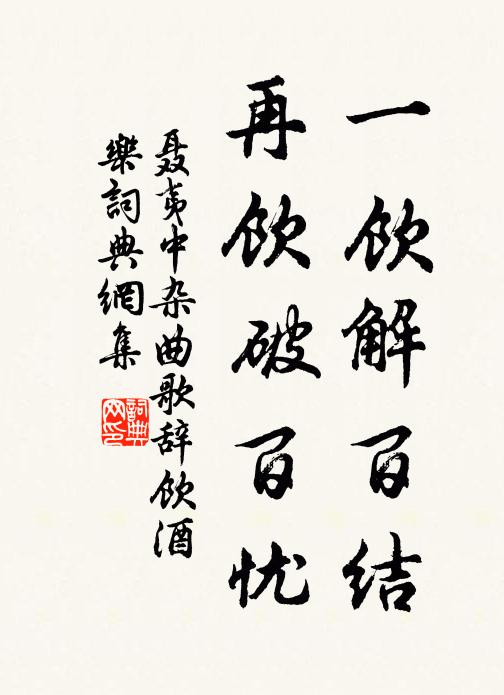 一饮解百结
再饮破百忧
聂夷中杂曲歌辞饮酒
樂詞典網集
詞典
网印